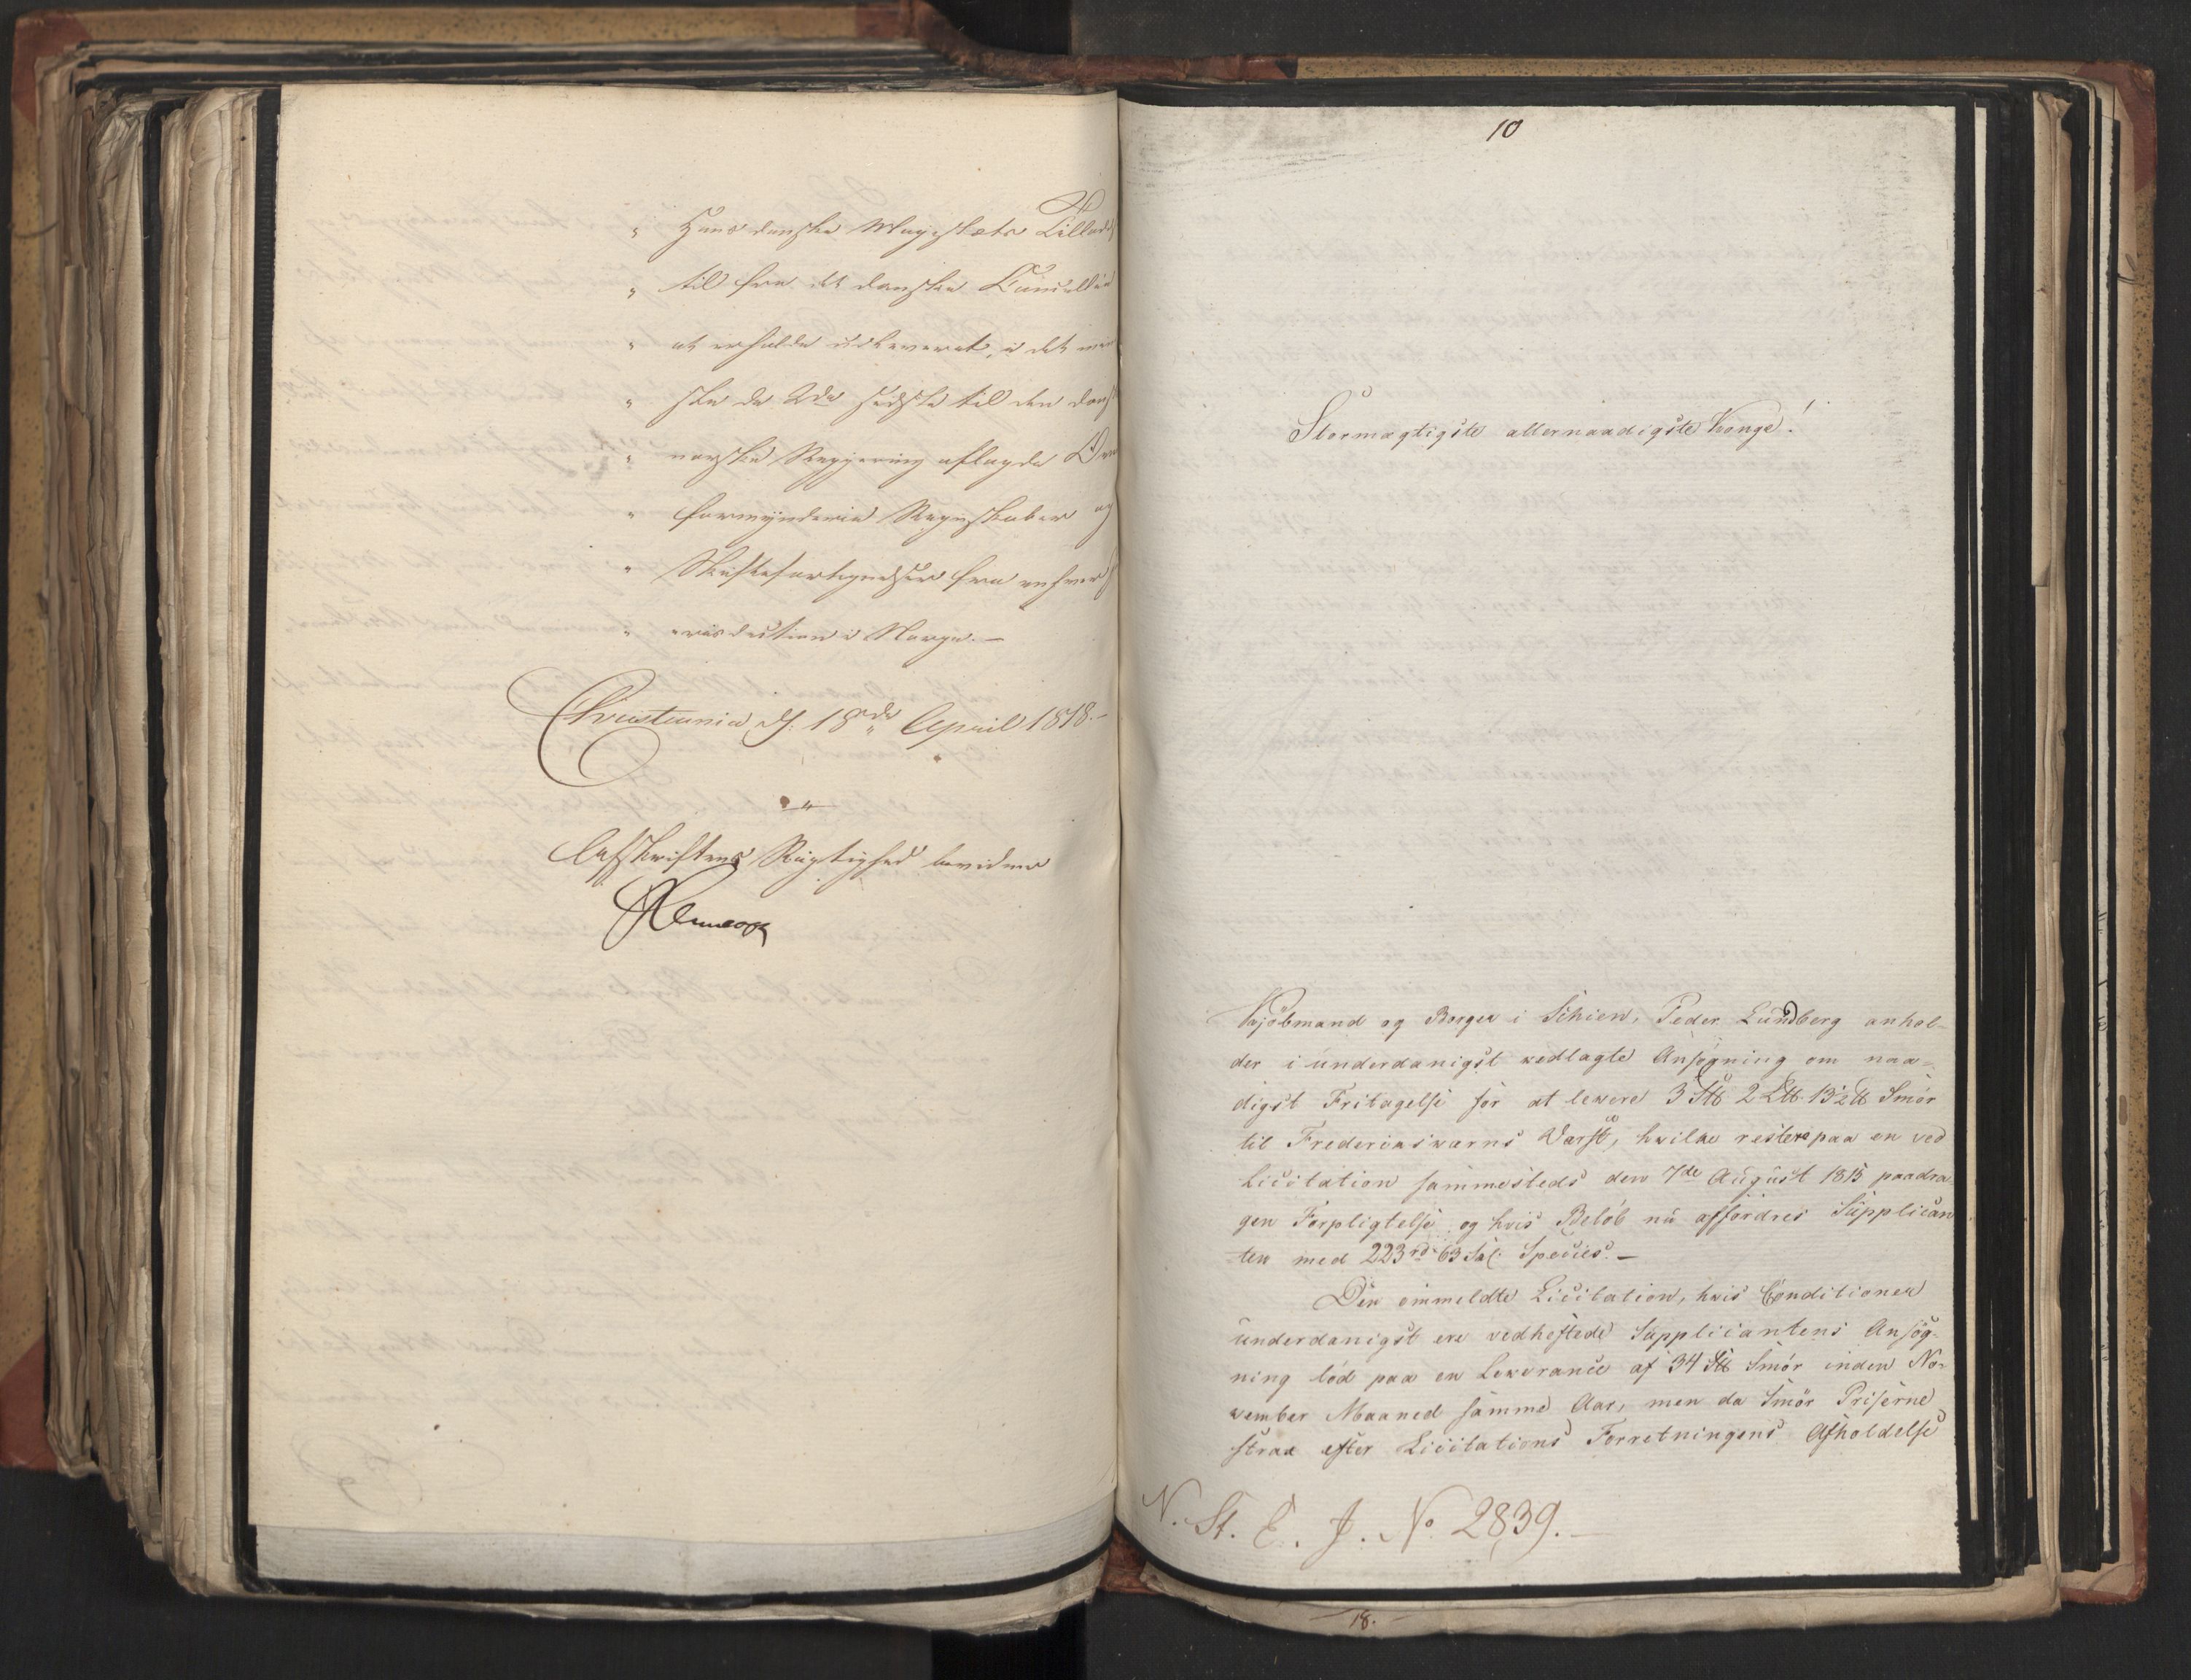 " Hans danske Mayestæts Tillade
" til fra det danske Cancellie
" at erholde udleveret, i det
" ste de 2de sidste til den dansk
" norske Regjering aflagde
" formynderie Regnskaber og
" Skiftefortegnelser fra enhver
" risdiction i Norge. –
Christiania d. 18de April 1818. –
Afskriftens Rigtighed bevidner
10
Stormægtigste allernaadigste Konge!
Kjøbmand og Borger i Schien, Peder Lundberg anhol-
der i underdanigst vedlagte Ansøgning om naa-
digst Fritagelse for at levere 3 S℔ 2 L℔ 13½ ℔ Smør
til Fredericsværns Værft, hvilke restere paa en ved
Licitation sammesteds den 7de August 1815 paadra-
gen Forpligtelse og hvis Beløb nu affordres Supplican
-ten med 223 rd. 63 Sk. Species. –
Den ommeldte Licitation, hvis Conditioner
underdanigst ere vedheftede Supplicantens Ansøg-
ning lød paa en Leverance af 34 S℔ Smør inden No-
vember Maaned samme Aar, men da Smør Priserne
strax efter Licitations Forretningens Afholdelse
N. St. E. J. No 2839. –
18.